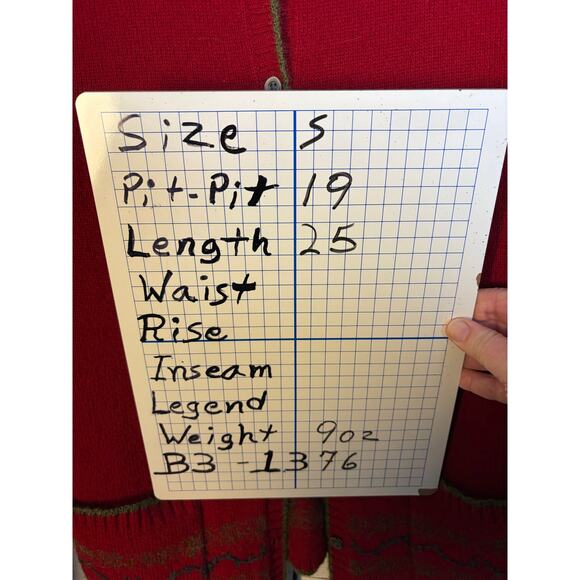 Size S
Pit-Pit 19
Length 25
Waist
Rise
Inseam
Legend
Weight 9oz
B3-1376